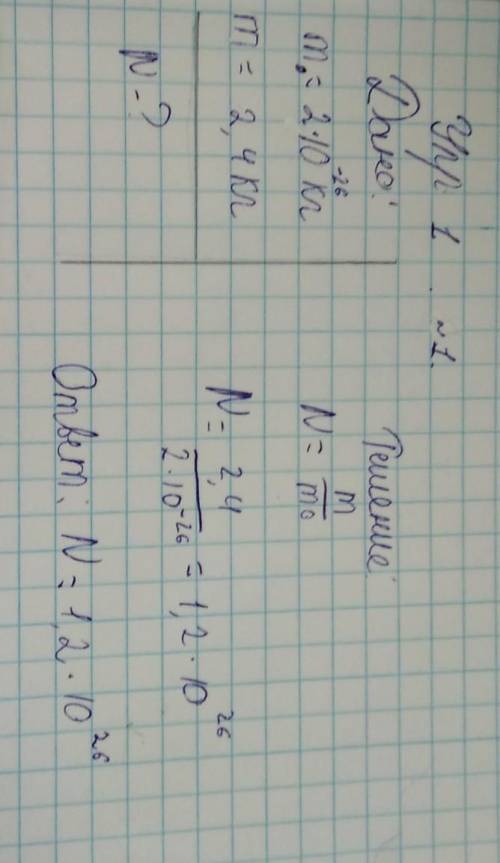 Упр. 1. №1.
Дано:
m₀ = 2·10⁻²⁶ кг
m = 2,4 кг
N - ?
Решение:
N = m/m₀
N = 2,4/2·10⁻²⁶ = 1,2·10²⁶
Ответ: N = 1,2·10²⁶